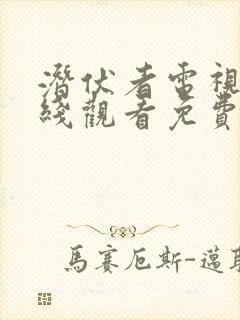 潛伏者電視
綫觀看免費
馬賽厄斯-邁